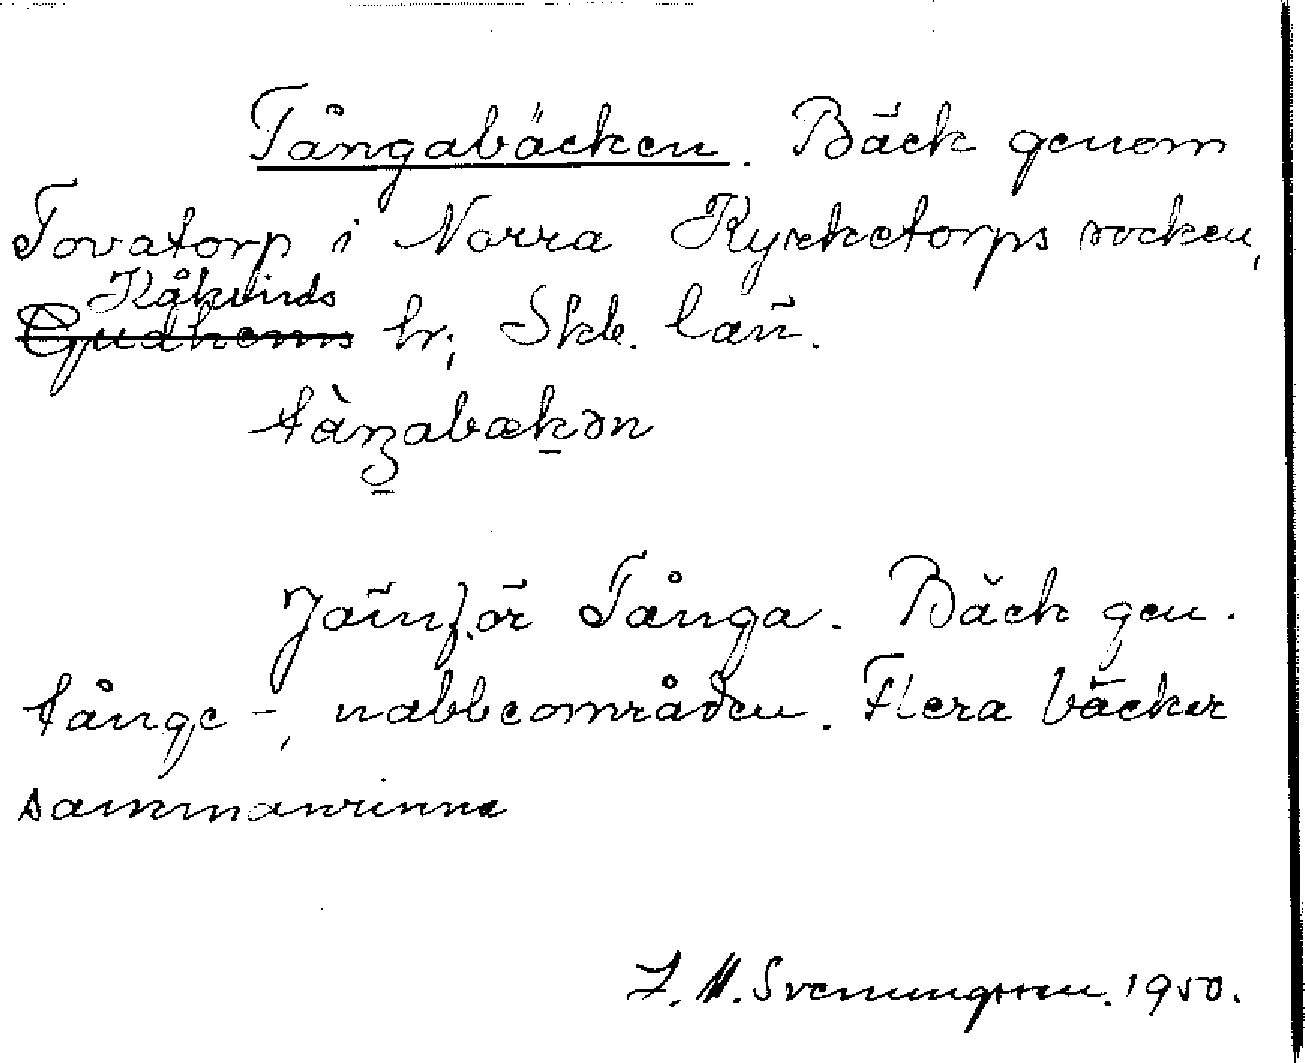 Tångabäcken. Bäck genom
Tovatorp i Norra Kyrketorps socken,
Kåkinds
Gudhems hr; Skb. län.
tàŋabækən
Jämför Tånga. Bäck gen.
tånge-, nabbeområden. Flera bäcker
sammanrinna
J. M. Svenungsson. 1950.